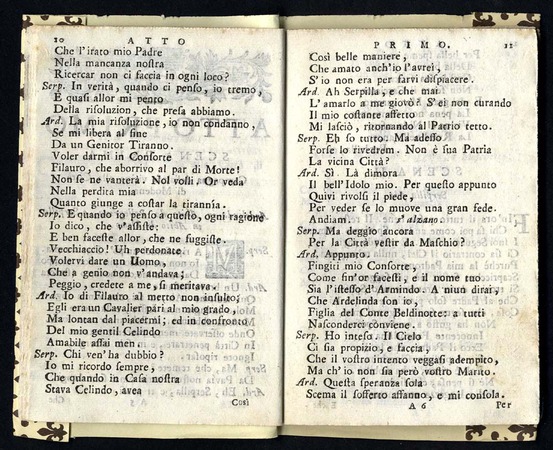 10 ATTO
Che l'irato mio Padre
Nella mancanza nostra
Ricercar non ci faccia in ogni loco?
Serp. In verità, quando ci penso, io tremo,
E quasi allor mi pento
Della risoluzion, che presa abbiamo.
Ard. La mia risoluzione, io non condanno,
Se mi libera al fine
Da un Genitor Tiranno.
Voler darmi in Consorte
Filauro, che aborrivo al par di Morte!
Non se ne vanterà. Nol volli. Or veda
Nella perdita mia
Quanto giunge a costar la tirannía.
Serp. E quando io penso a questo, ogni ragione
Io dico, che v'assiste;
E ben faceste allor, che ne fuggiste.
Vecchiaccio! Uh perdonate.
Volervi dare un Uomo,
Che a genio non v'andava;
Peggio, credete a me, si meritava.
Ard. Io di Filauro al metto non insulto;
Egli era un Cavalier pári al mio grado,
Ma lontan dal piacermi; ed in confronto
Del mio gentil Celindo
Amabile assai men.
Serp. Chi ven'ha dubbio?
Io mi ricordo sempre,
Che quando in Casa nostra
Stava Celindo, avea
Così
PRIMO. 11
Così belle maniere,
Che amato anch'io l'avrei,
S'io non era per farvi dispiacere.
Ard. Ah Serpilla, e che mai
L'amarlo a me giovò? S'ei non curando
Il mio costante affetto
Mi lasciò, ritornando al Patrio tetto.
Serp. Eh so tutto. Ma adesso
Forse lo rivedrem. Non è sua Patria
La vicina Città?
Ard. Sì. Là dimora
Il bell'Idolo mio. Per questo appunto
Quivi rivolsi il piede,
Per veder se lo muove una gran fede.
Andiam. s'alzano.
Serp. Ma deggio ancora
Per la Città vestir da Maschio?
Ard. Appunto.
Fingiti mio Consorte,
Come fin'or facesti, e il nome tuo
Sia l'istesso d'Armindo. A niun dirai,
Che Ardelinda son io,
Figlia del Conte Beldinotte: a tutti
Nasconderci conviene.
Serp. Ho inteso. Il Cielo
Ci sia propizio, e faccia,
Che il vostro intento veggasi adempito,
Ma ch'io non sia però vostro Marito.
Ard. Questa speranza sola
Scema il sofferto affanno, e mi consola.
A 6 Per